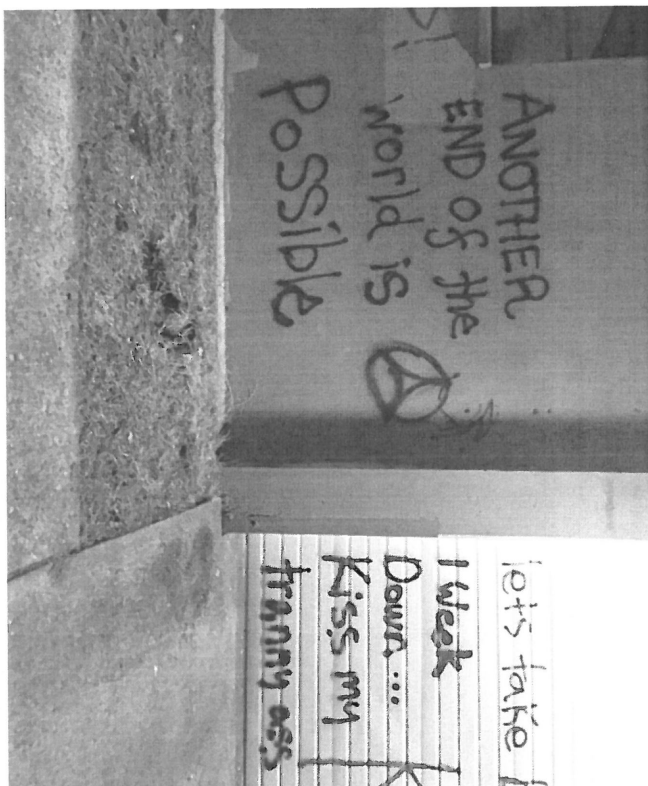 ANOTHER
END of the
world is
PoSSible
lets take
1 Week
Down...
Kiss my
tranny ass